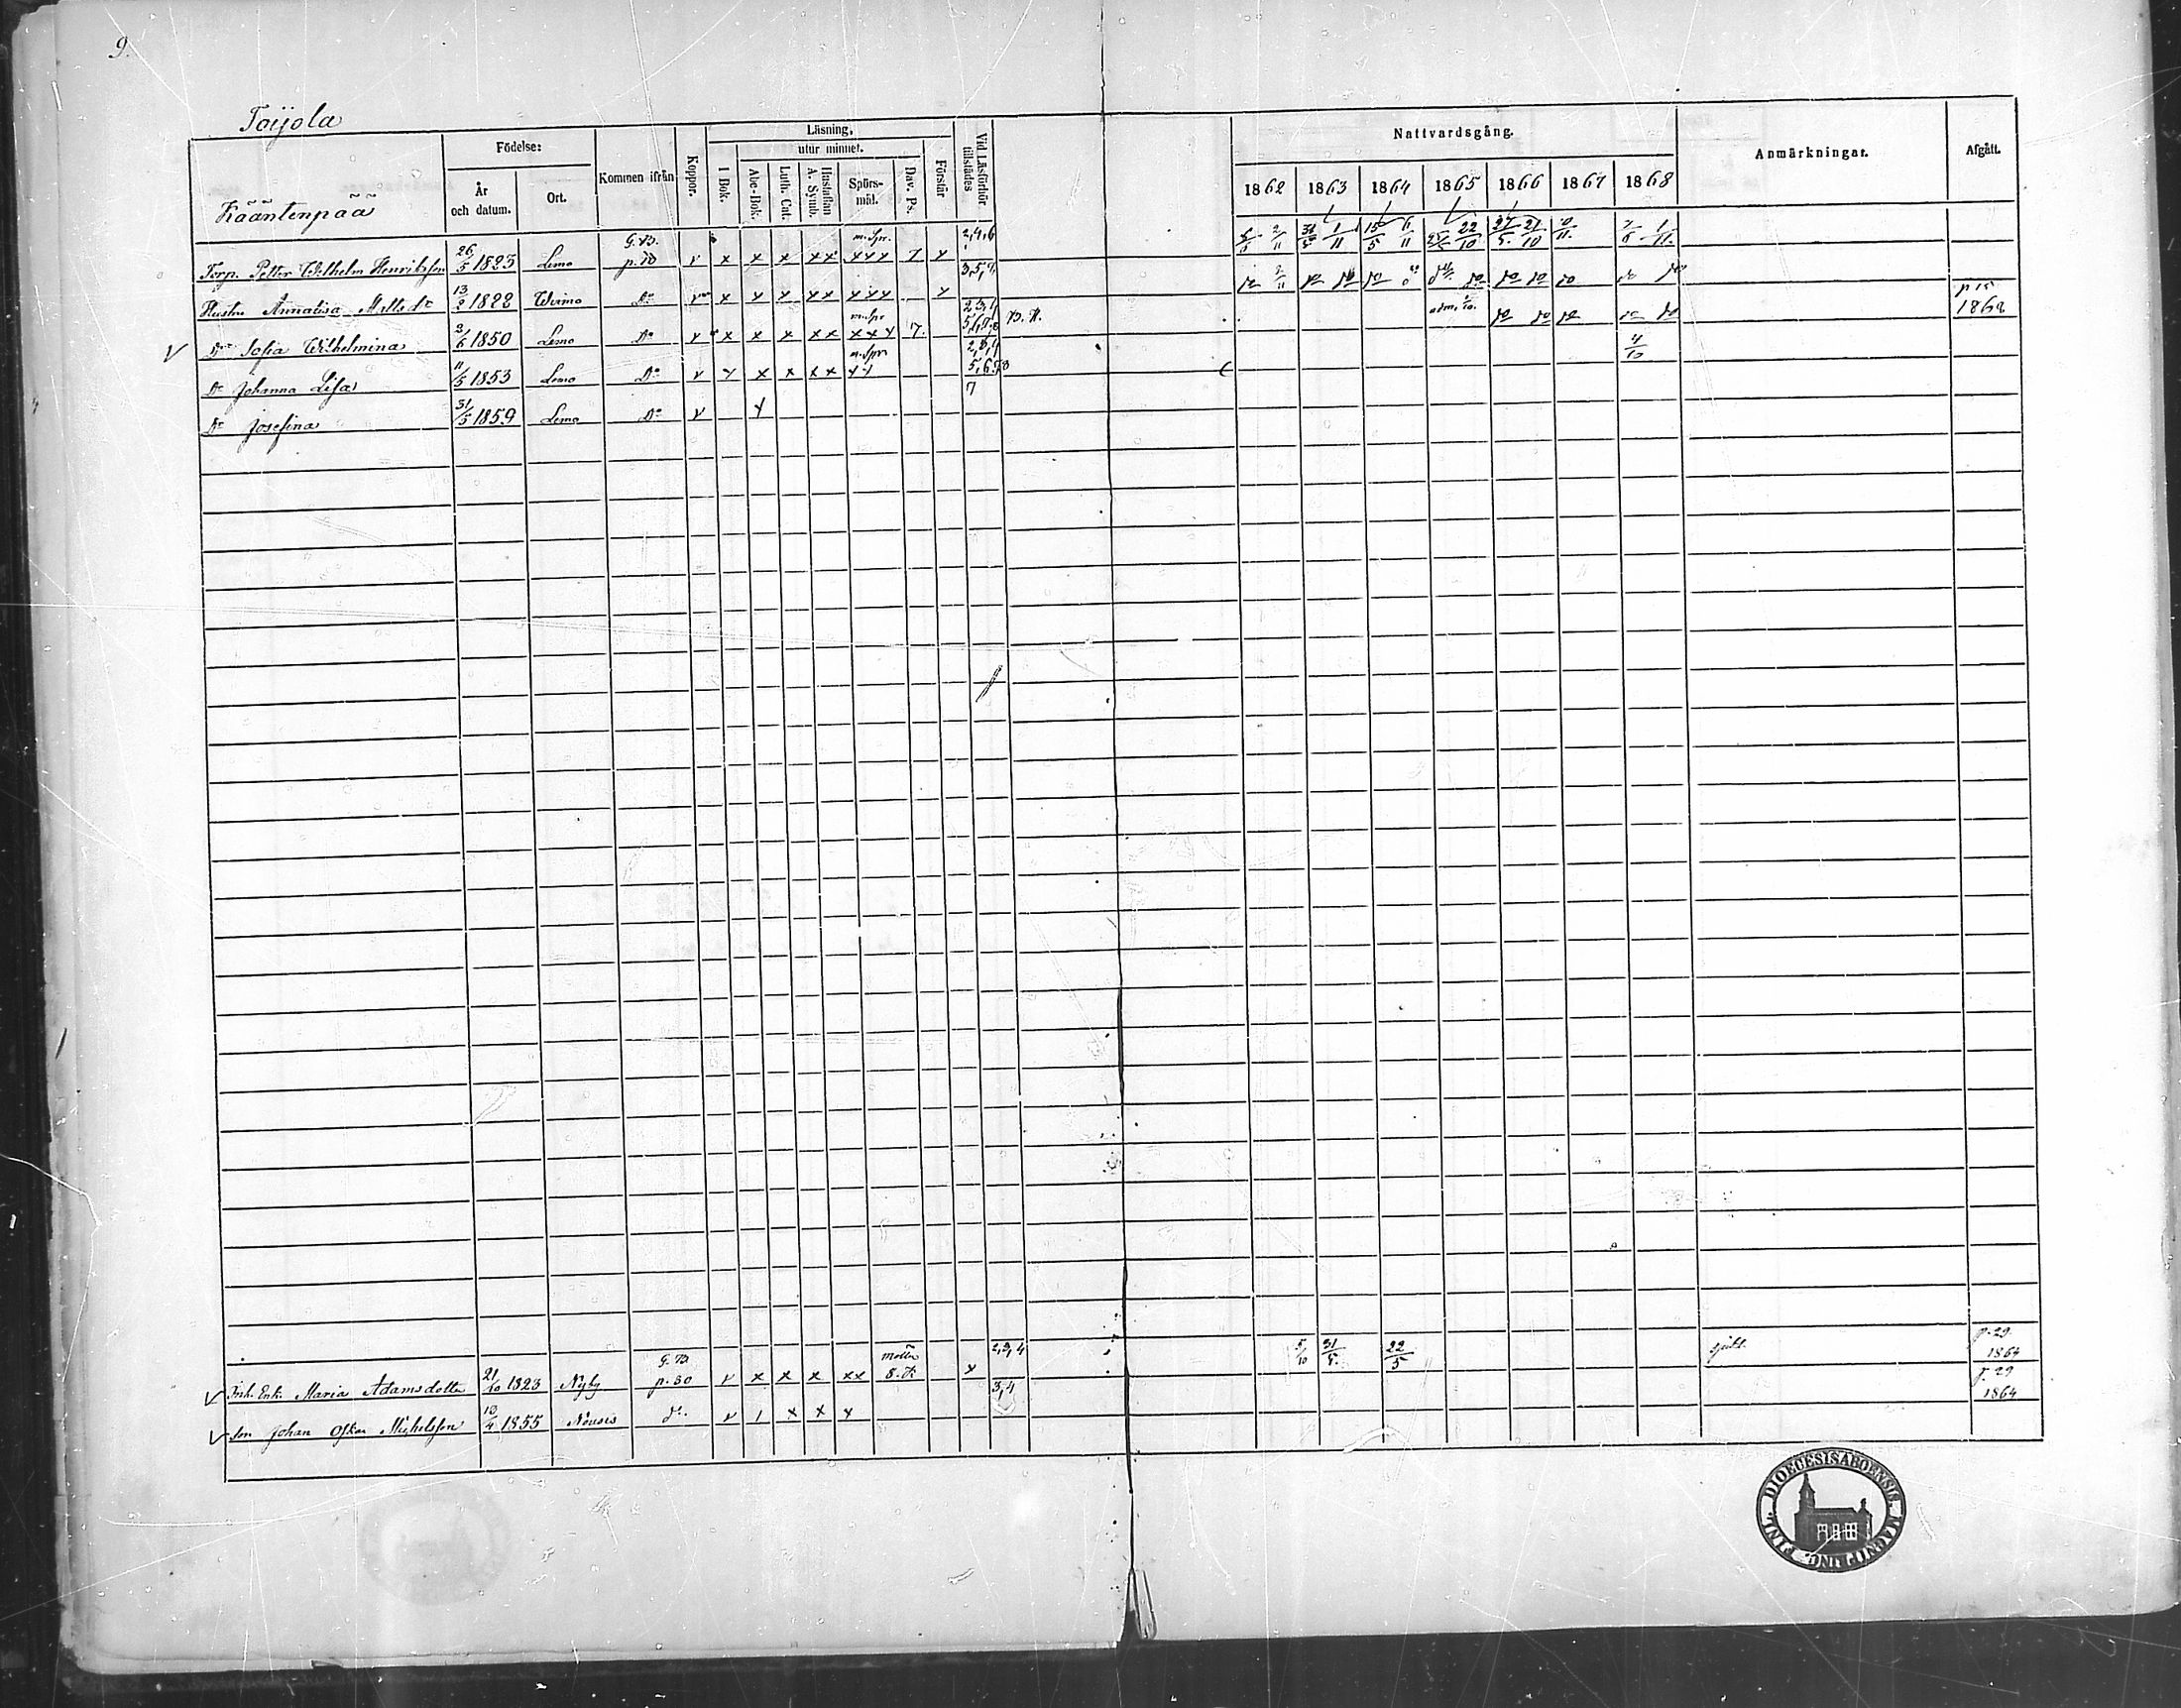 9.
Toijola
Kääntenpää
Födelse:
År och datum.
Ort.
Kommen ifrån
Koppor.
Läsning,
I Bok.
utur minnet.
Abc-Bok.
Luth. Cat.
Hustaflan A. Symb.
Spörs-mål.
Dav. Ps.
Förstår
Vid Läsförhör tillstädes
Nattvardsgång.
1862 1863 1864 1865 1866 1867 1868
Anmärkningar.
Afgått.
Torp. Petter Wilhelm Henriksson 26/5 1823 Lemo G. B. p. 10 v x x x xx m. Spr. xxx 7 x 2,4,6 2/11 31/5 1/11 15/5 6/11 22/10 27/5 21/10 1/11.
Hustru Annalisa Matts dr 13/2 1822 Wirmo Do x x x xx xxx x 3,5,7, do 2/11 do do do do do do do do do
Dr Sofia Wilhelmina 3/6 1850 Lemo Do v x x x xx m. Spr xxx 7. 2,3,4 B. H. adm. do do do do do p 15 1868
Dr Johanna Lisa 11/5 1853 Lemo Do v x x x xx m. Spr 2,3,4 5,6,7,8 4/10
Dr Josefina 31/5 1859 Lemo Do v x 7
Inh. Enk. Maria Adamsdotter 21/10 1823 Nyby G. B. p. 30 v x x x xx x 2,3,4 5/10 31/5. 22/5 p. 29 1864
Son Johan Oskar Michelsson 12/4 1855 Nousis do. v 1 x x x 3,4 p. 29 1864
DIOECESIS ABOENSIS MAGNI PRINC. FINL.